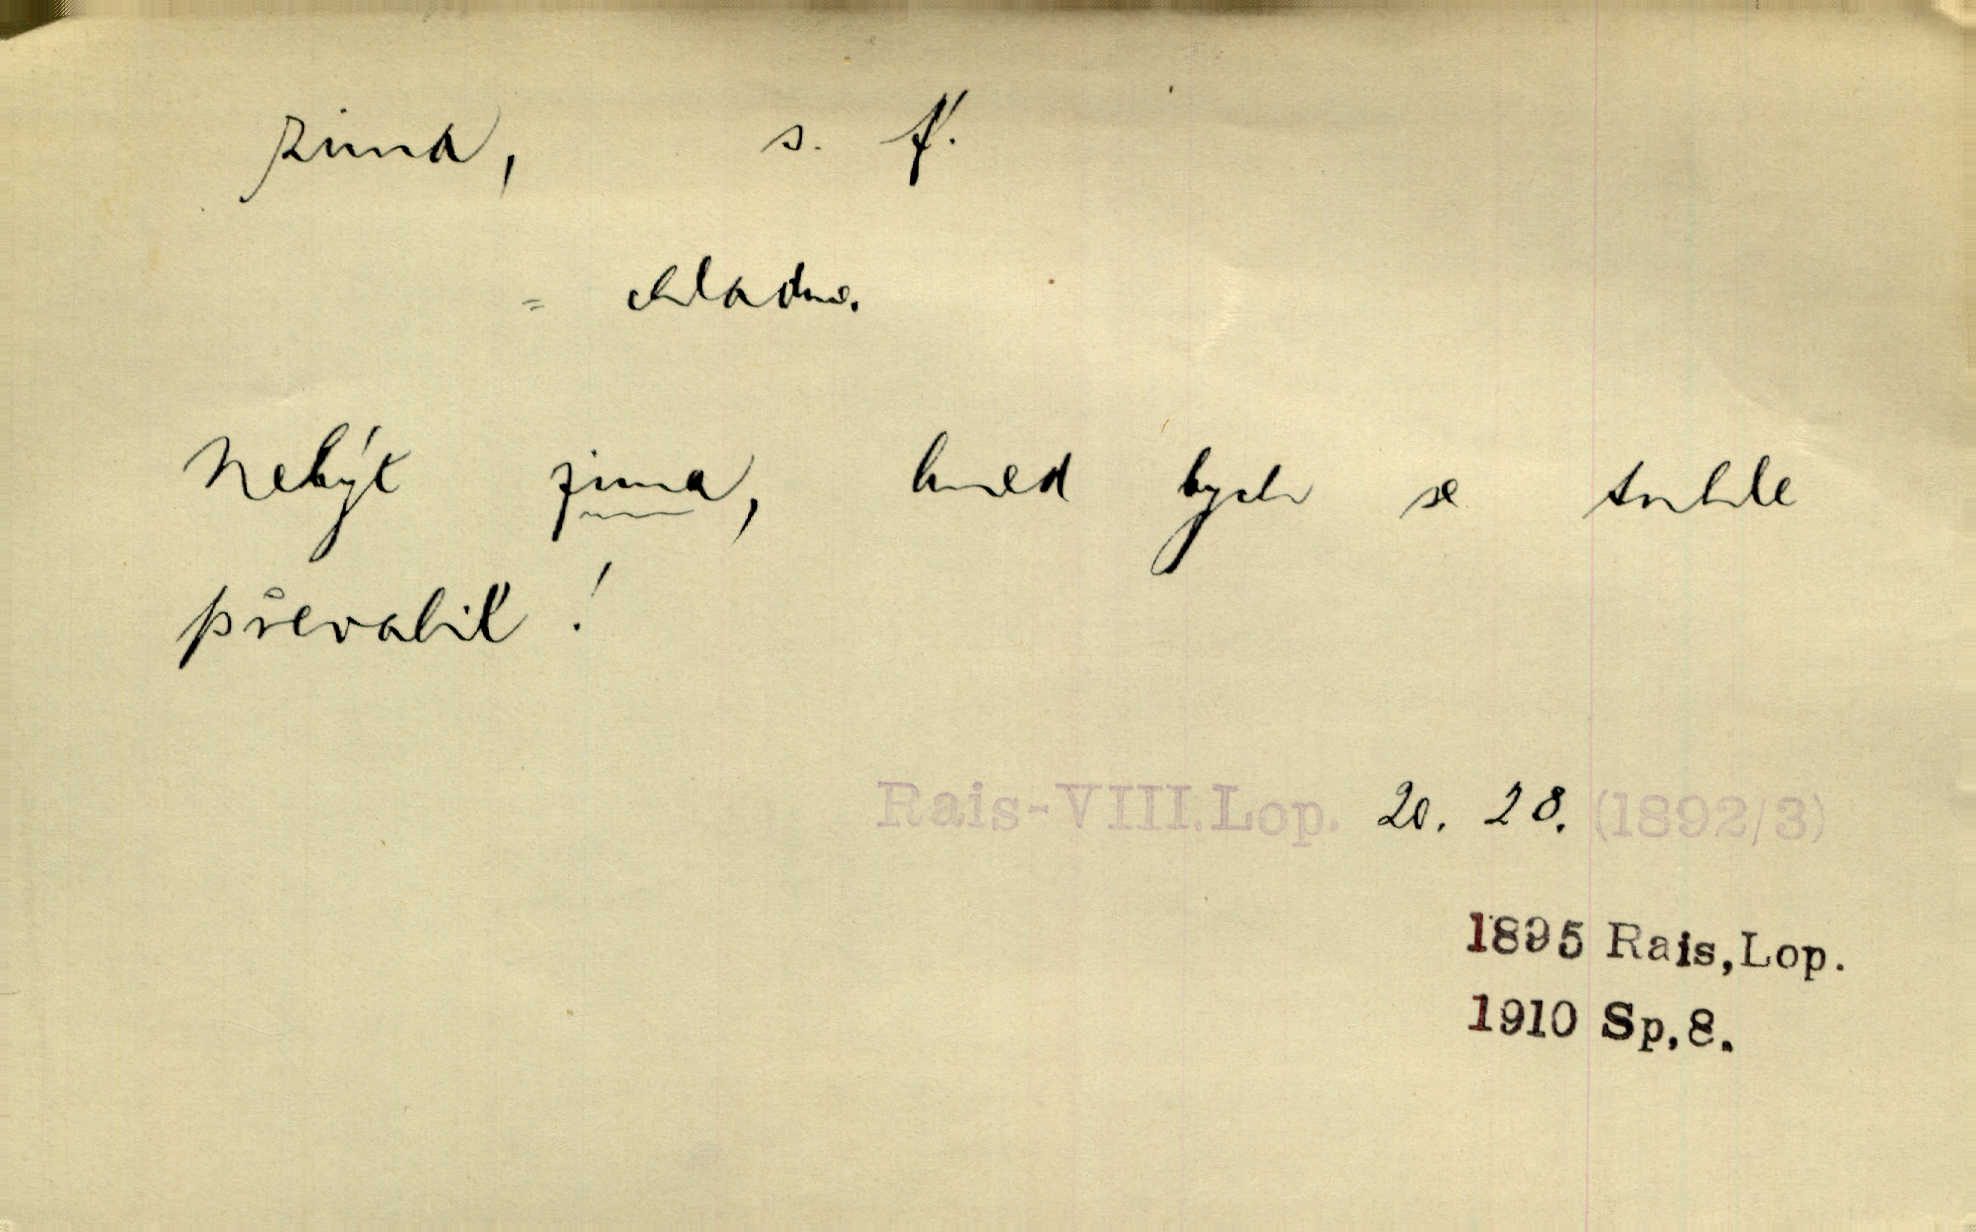 zima, s. f.
= chladno.
Nebýt zima, hned bych se tuhle
převalil!
Rais-VIII.Lop. 20. 28. (1892/3)
1895 Rais,Lop.
1910 Sp.8.